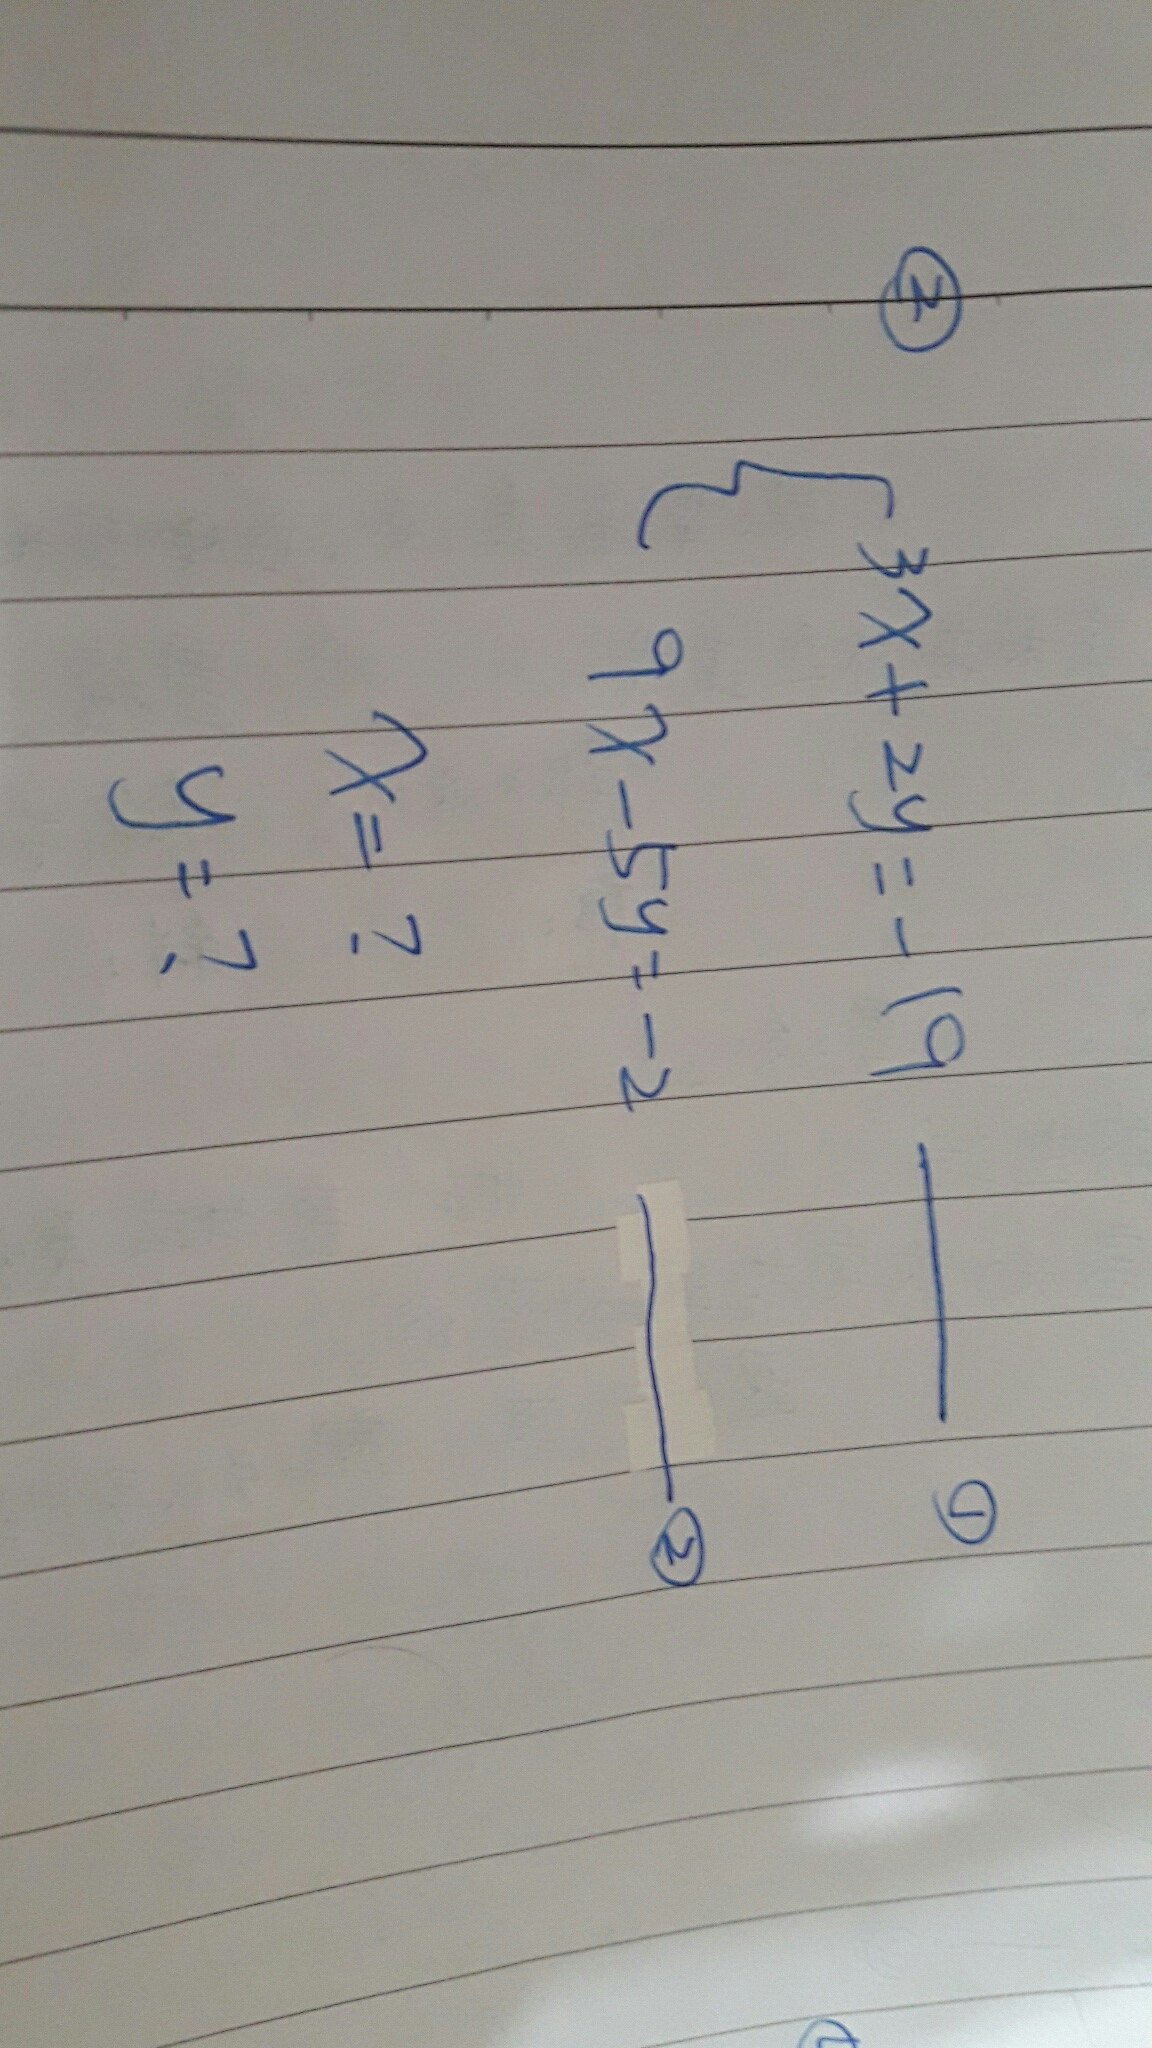 ② 3x + 2y = -19 ①
9x - 5y = -2 ②
x = ?
y = ?